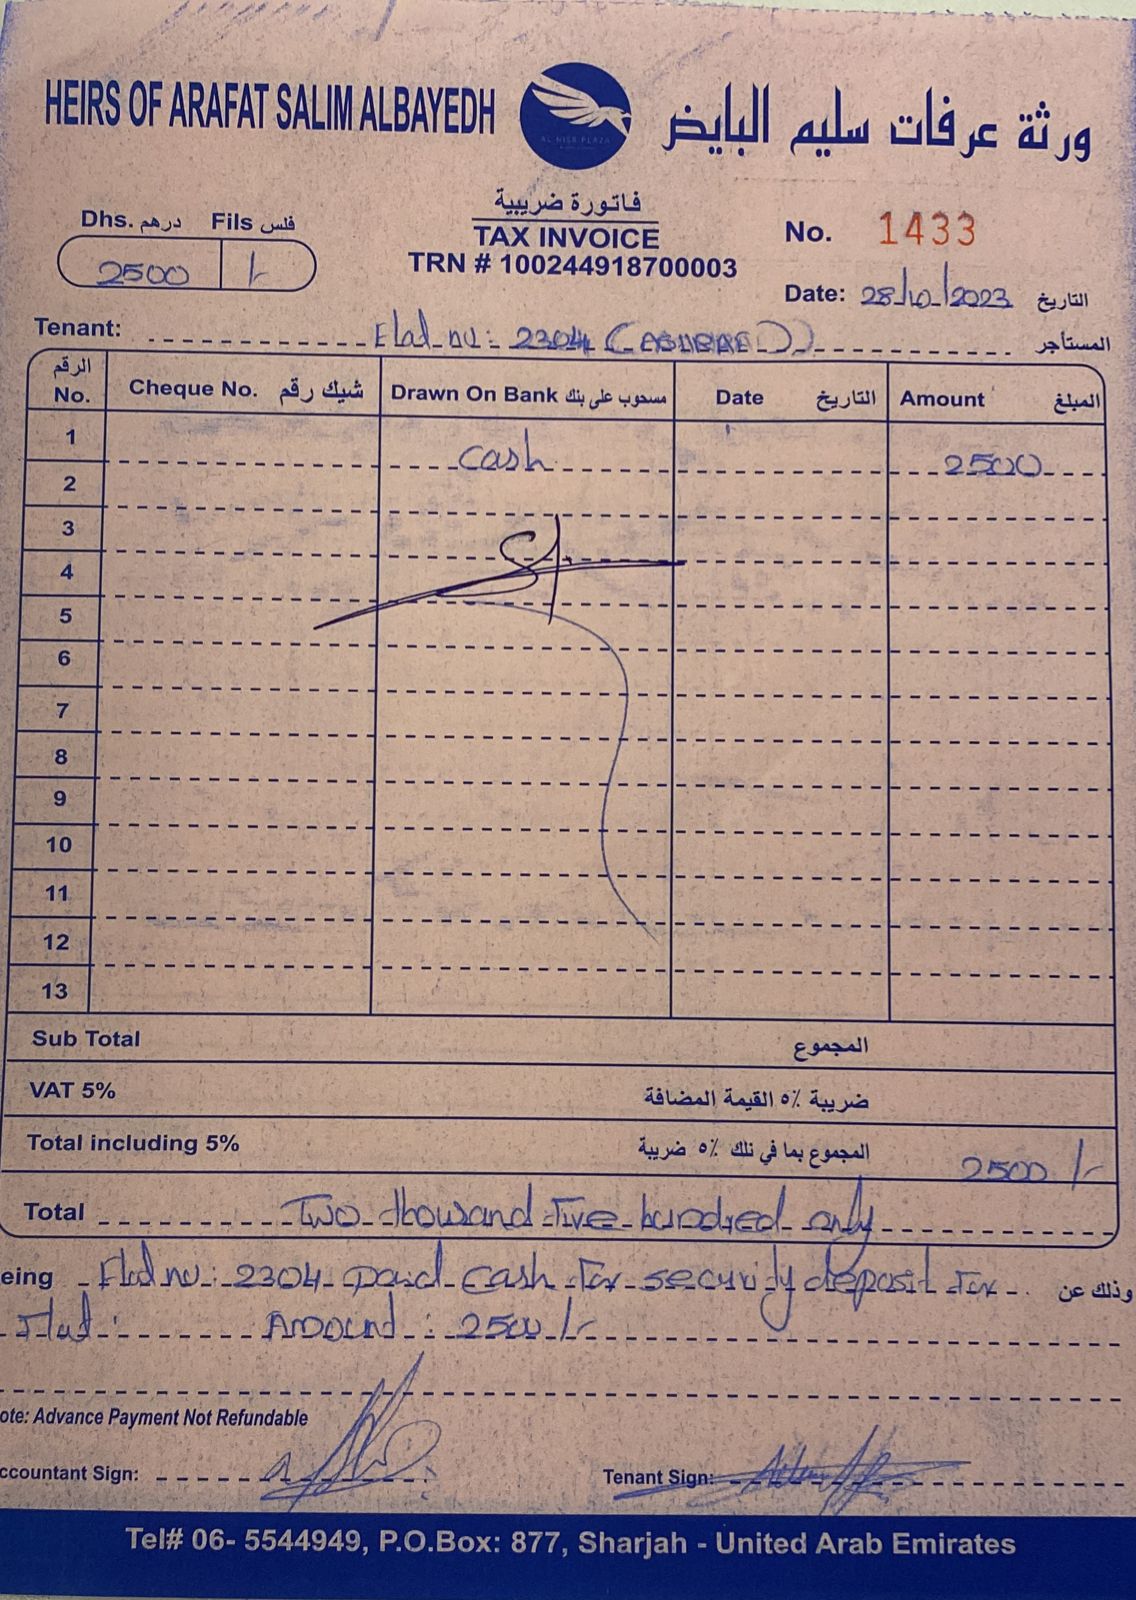 HEIRS OF ARAFAT SALIM ALBAYEDH
ورثة عرفات سليم البايض
AL NISR PLAZA
فاتورة ضريبية
TAX INVOICE
TRN # 100244918700003
Dhs. درهم Fils فلس
2500 /-
No. 1433
Date: 28/10/2023 التاريخ
Tenant: Flat no: 2304 المستاجر
الرقم No. Cheque No. شيك رقم Drawn On Bank مسحوب على بنك Date التاريخ Amount المبلغ
1 cash 2500
2
3
4
5
6
7
8
9
10
11
12
13
Sub Total المجموع
VAT 5% ضريبة ٥٪ القيمة المضافة
Total including 5% المجموع بما في ذلك ٥٪ ضريبة 2500 /-
Total Two thousand Five hundred only
eing Flat no: 2304 paid cash For security deposit For وذلك عن
Flat: Amount: 2500/-
ote: Advance Payment Not Refundable
ccountant Sign: Tenant Sign:
Tel# 06- 5544949, P.O.Box: 877, Sharjah - United Arab Emirates